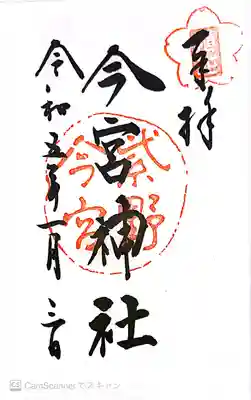 奉拝
今宮神社
紫野
今宮
令和五年一月三日
CamScannerでスキャン